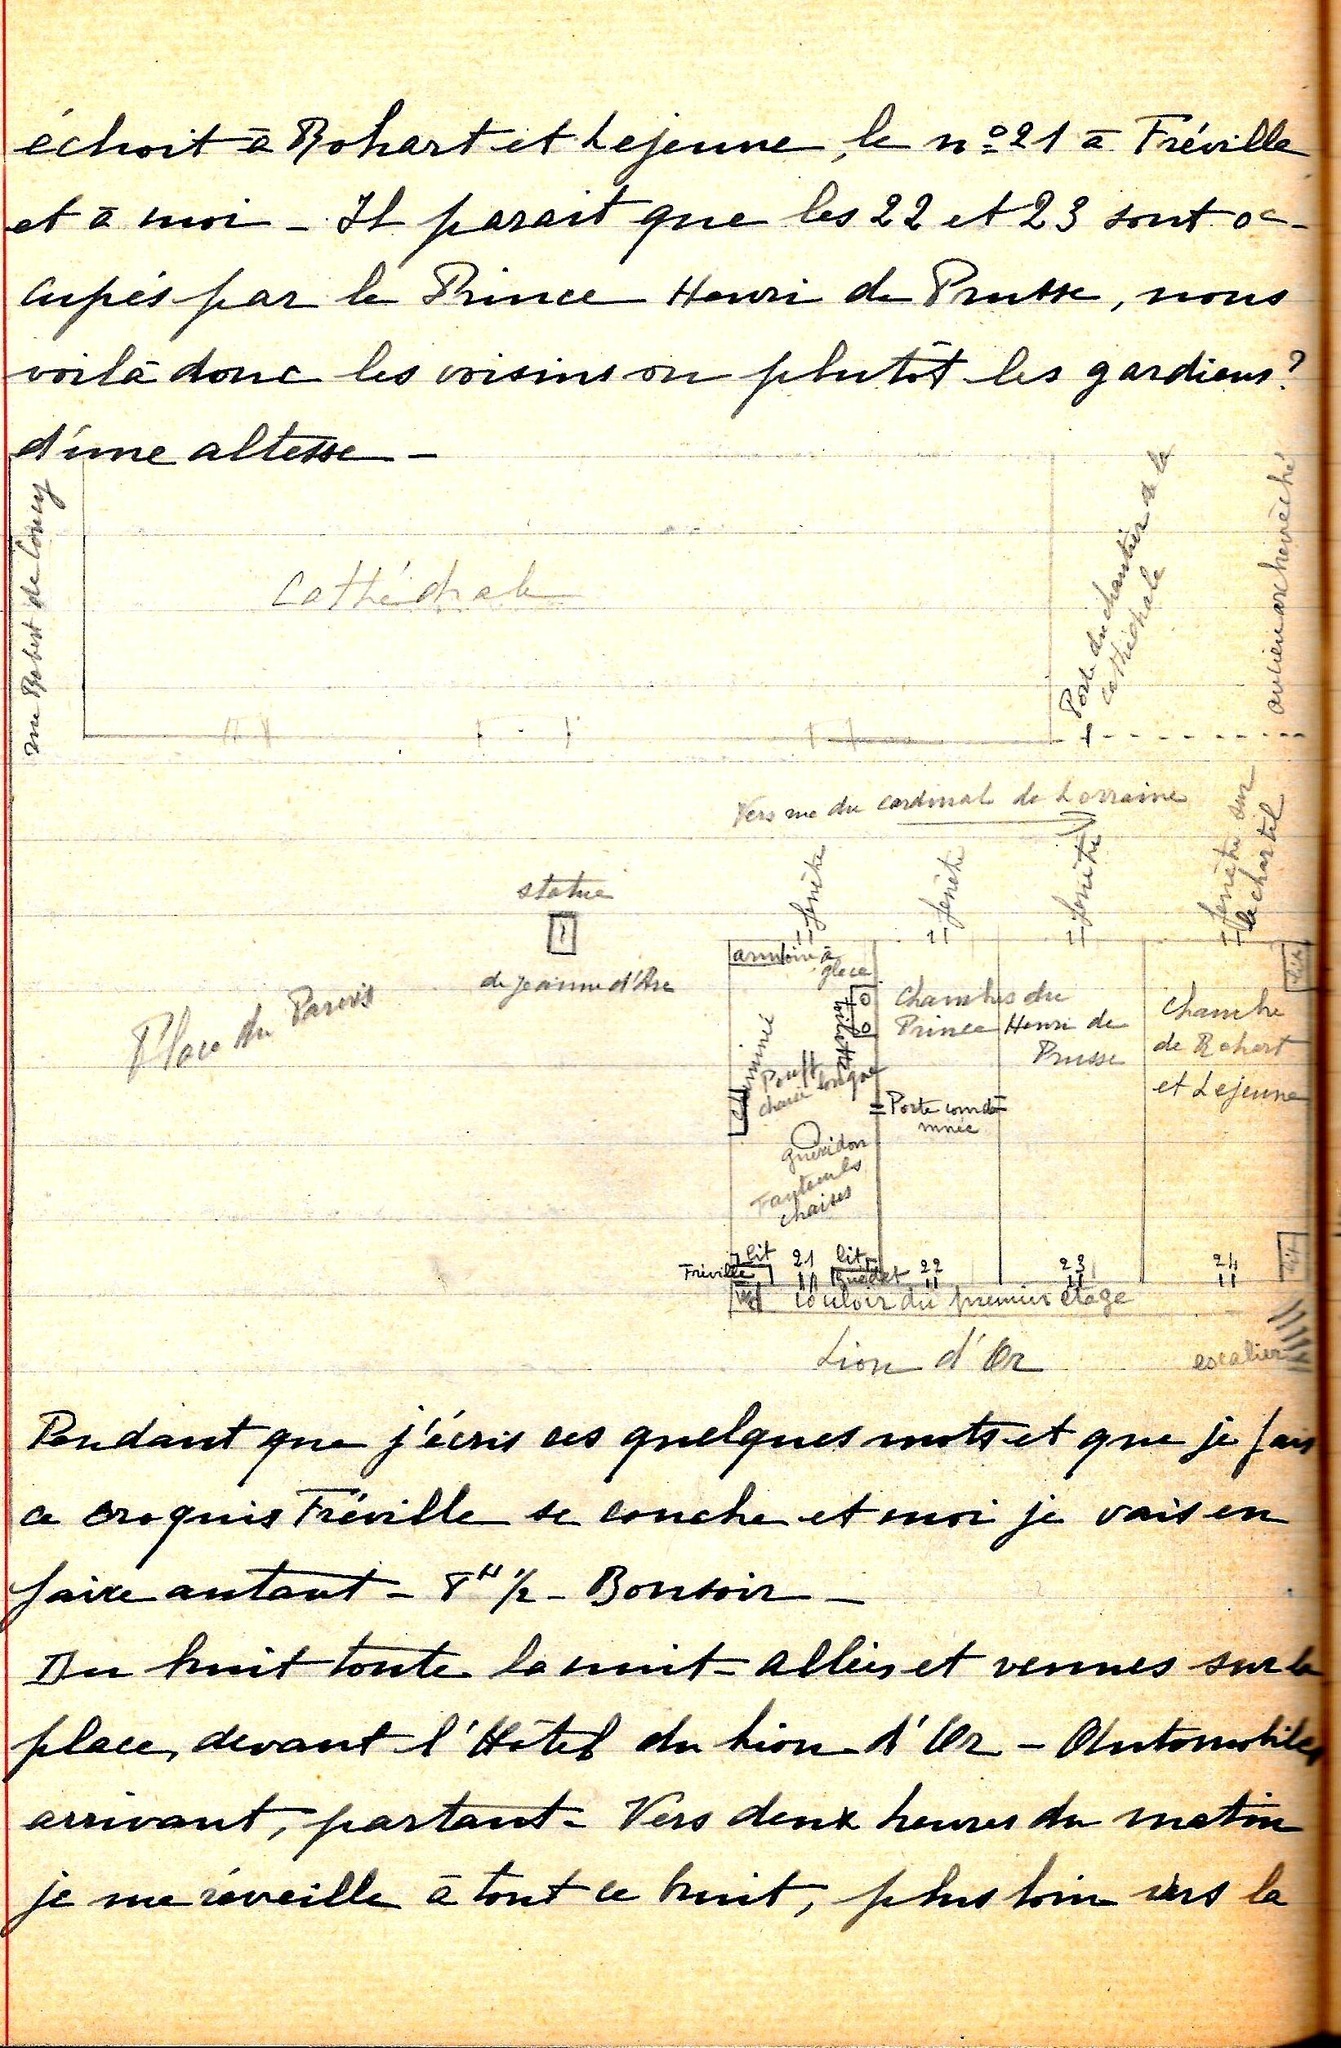 échoit à Rohart et Lejeune, le n° 21 à Fréville
et à moi - Il parait que les 22 et 23 sont oc-
cupés par le Prince Henri de Prusse, nous
voilà donc les voisins ou plutôt les gardiens?
d'une altesse -
rue Robert de Coucy
Cathédrale
Porte du chantier de la
cathédrale
ancien archevêché
Vers rue du cardinal de Lorraine
fenêtre
fenêtre
fenêtre
fenêtre sur
la chartil
statue
de Jeanne d'Arc
Place du Parvis
armoire à
glace
toilette
cheminée
Pouff
chaise longue
guéridon
Fauteuils
chaises
Chambres du
Prince Henri de
Prusse
Porte conda-
mnée
Chambre
de Rohart
et Lejeune
lit
lit
lit 21 lit 22 23 24
Fréville Guédet
WC couloir du premier étage
Lion d'Or
escalier
Pendant que j'écris ces quelques mots et que je fais
ce croquis Fréville se couche et moi je vais en
faire autant - 8H 1/2 - Bonsoir -
Du bruit toute la nuit - allées et venues sur la
place, devant l'Hôtel du Lion d'Or - Automobiles
arrivant, partant - Vers deux heures du matin
je me réveille à tout ce bruit, plus loin vers la